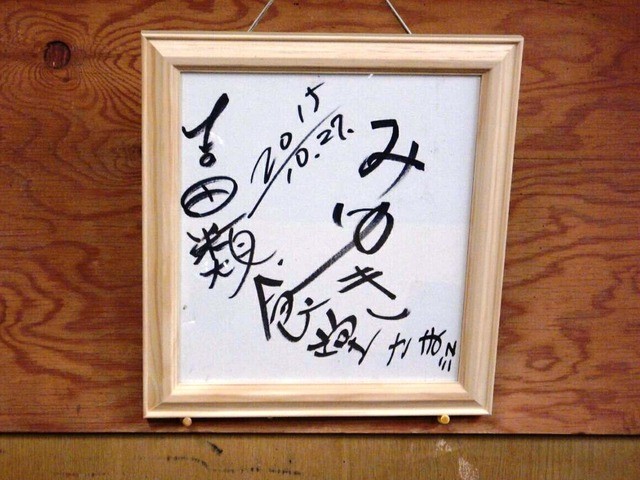 みゆき
食堂さん江
2015
10.27.
吉田類